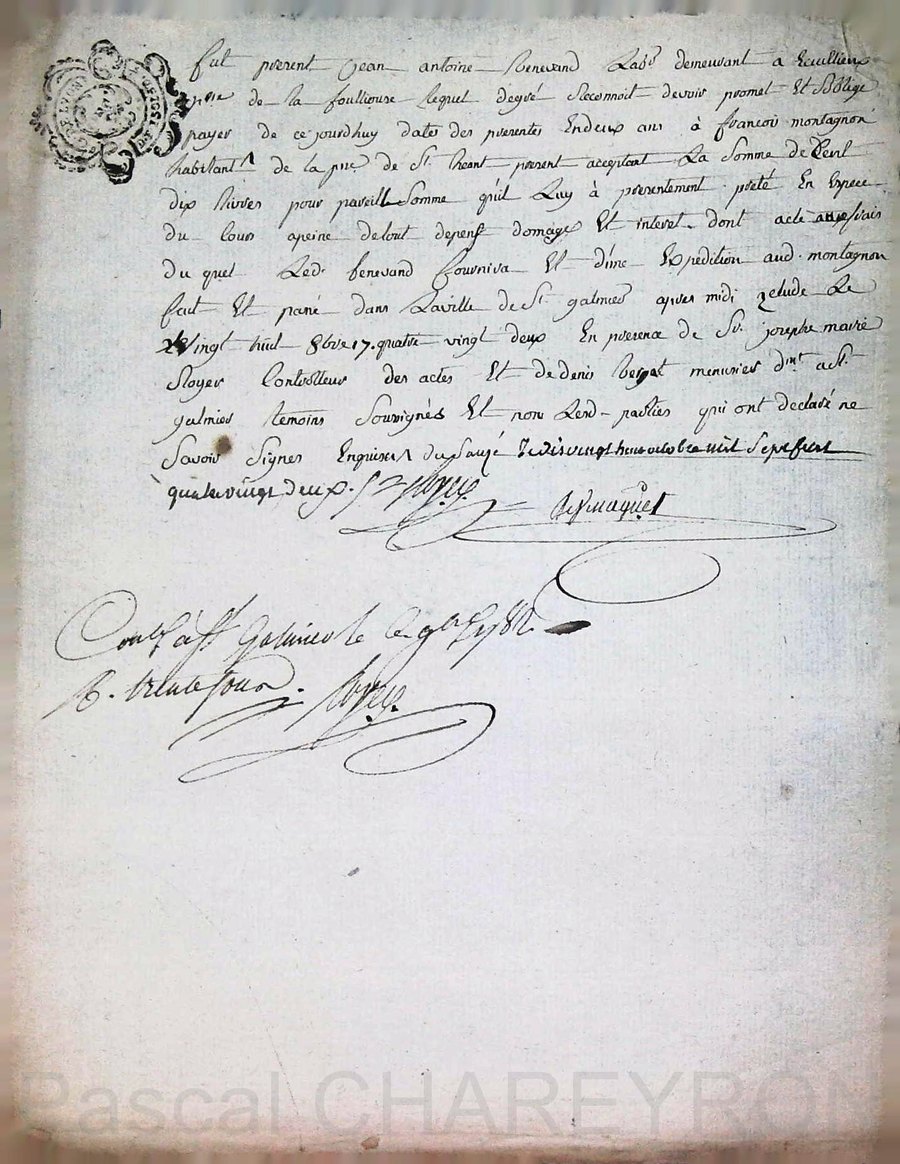 fut present Jean antoine Benevand Labr. demeurant a
psse de la foulliouse lequel degré Reconnoit devoir promet Et Oblige
payer de ce jourdhuy dates des presentes En deux ans à françois montagnon
habitant de la pse. de St. heant present acceptant La Somme de Cent
dix livres pour pareille Somme qu'il Luy à presentement preté En Espece
du Cours apeine de tout depens domage Et interet dont acte aux frais
du quel Led. benevand fournira Et d'une Expedition aud. montagnon
fait Et passé dans La ville de St. galmier apres midi Etude Le
vingt huit 8bre 17. quatre vingt deux En presence de Sr. joseph marie
Royer Controlleur des actes Et de denis menusier dmt. a St.
galmier temoins Soussignés Et non Lesd. parties qui ont declaré ne
Savoir Signer Enquises vingt huit octobre mil Sept cent
quatre vingt deux. Royer
Contlé a St Galmier le
R. trente sous. Royer
Pascal CHAREYRON